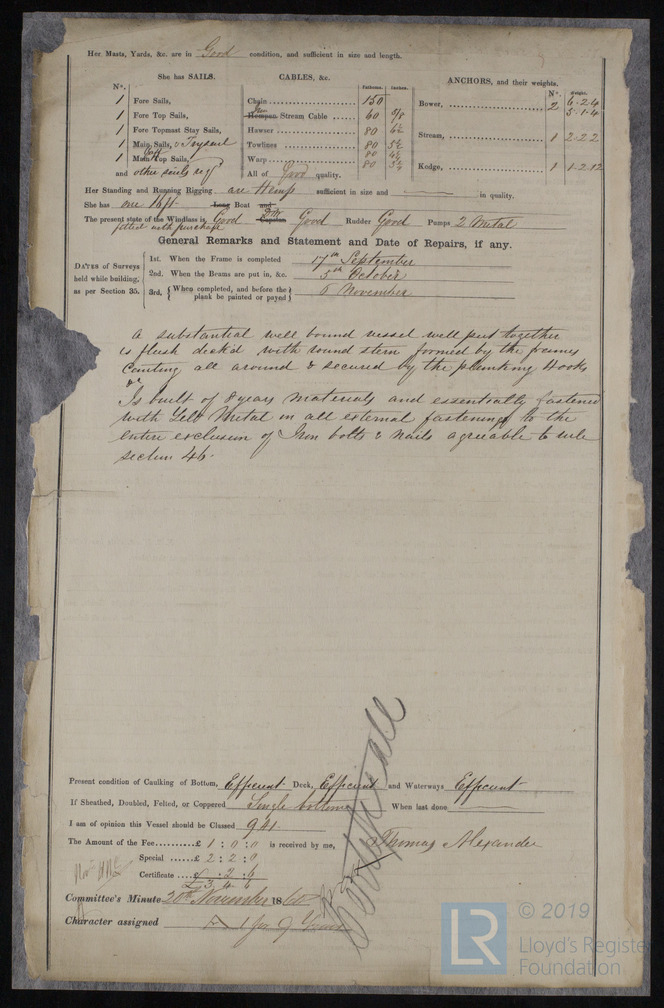 Her Masts, Yards, &c. are in Good condition, and sufficient in size and length.
She has SAILS.
CABLES, &c.
ANCHORS, and their weights.
N°.
Fathoms. Inches.
N°. Weight.
1 Fore Sails,
Chain 150
Bower, 2 6-2-4
5-1-4
1 Fore Top Sails,
Iron Hempen Stream Cable 60 5/8
1 Fore Topmast Stay Sails,
Hawser 80 6½
Stream, 1 2-2-2
1 Main Sails, & Trysail
Towlines 80 5½
80 4½
1 Main Gaff Top Sails,
Warp 80 3½
Kedge, 1 1-2-12
and other sails reqd
All of Good quality.
Her Standing and Running Rigging are Hemp sufficient in size and in quality.
She has one 16ft Long Boat and
The present state of the Windlass is Good Capstan Good Rudder Good Pumps 2 Metal
fitted with purchase
General Remarks and Statement and Date of Repairs, if any.
DATES of Surveys held while building, as per Section 35.
1st. When the Frame is completed 17th September
2nd. When the Beams are put in, &c. 5th October
3rd, {When completed, and before the plank be painted or payed} 6 November
A substantial well bound vessel well put together
is flush deck'd with round stern formed by the frames
Canting all around & secured by the planking Hooks
&c
Is built of 8 years Materials and essentially fastened
with Yell Metal in all external fastenings to the
entire exclusion of Iron bolts & nails agreeable to rule
section 46.
Present condition of Caulking of Bottom, Efficient Deck, Efficient and Waterways Efficient
If Sheathed, Doubled, Felted, or Coppered Single bottom When last done
I am of opinion this Vessel should be Classed 9A1
The Amount of the Fee £ 1 : 0 : 0 is received by me, Thomas Alexander
Special £ 2 : 2 : 0
Certificate : 2 : 6
£ 3 4 6
Committee's Minute 20th November 1860
Character assigned A 1 for 9 Years
LR
© 2019
Lloyd's Register
Foundation